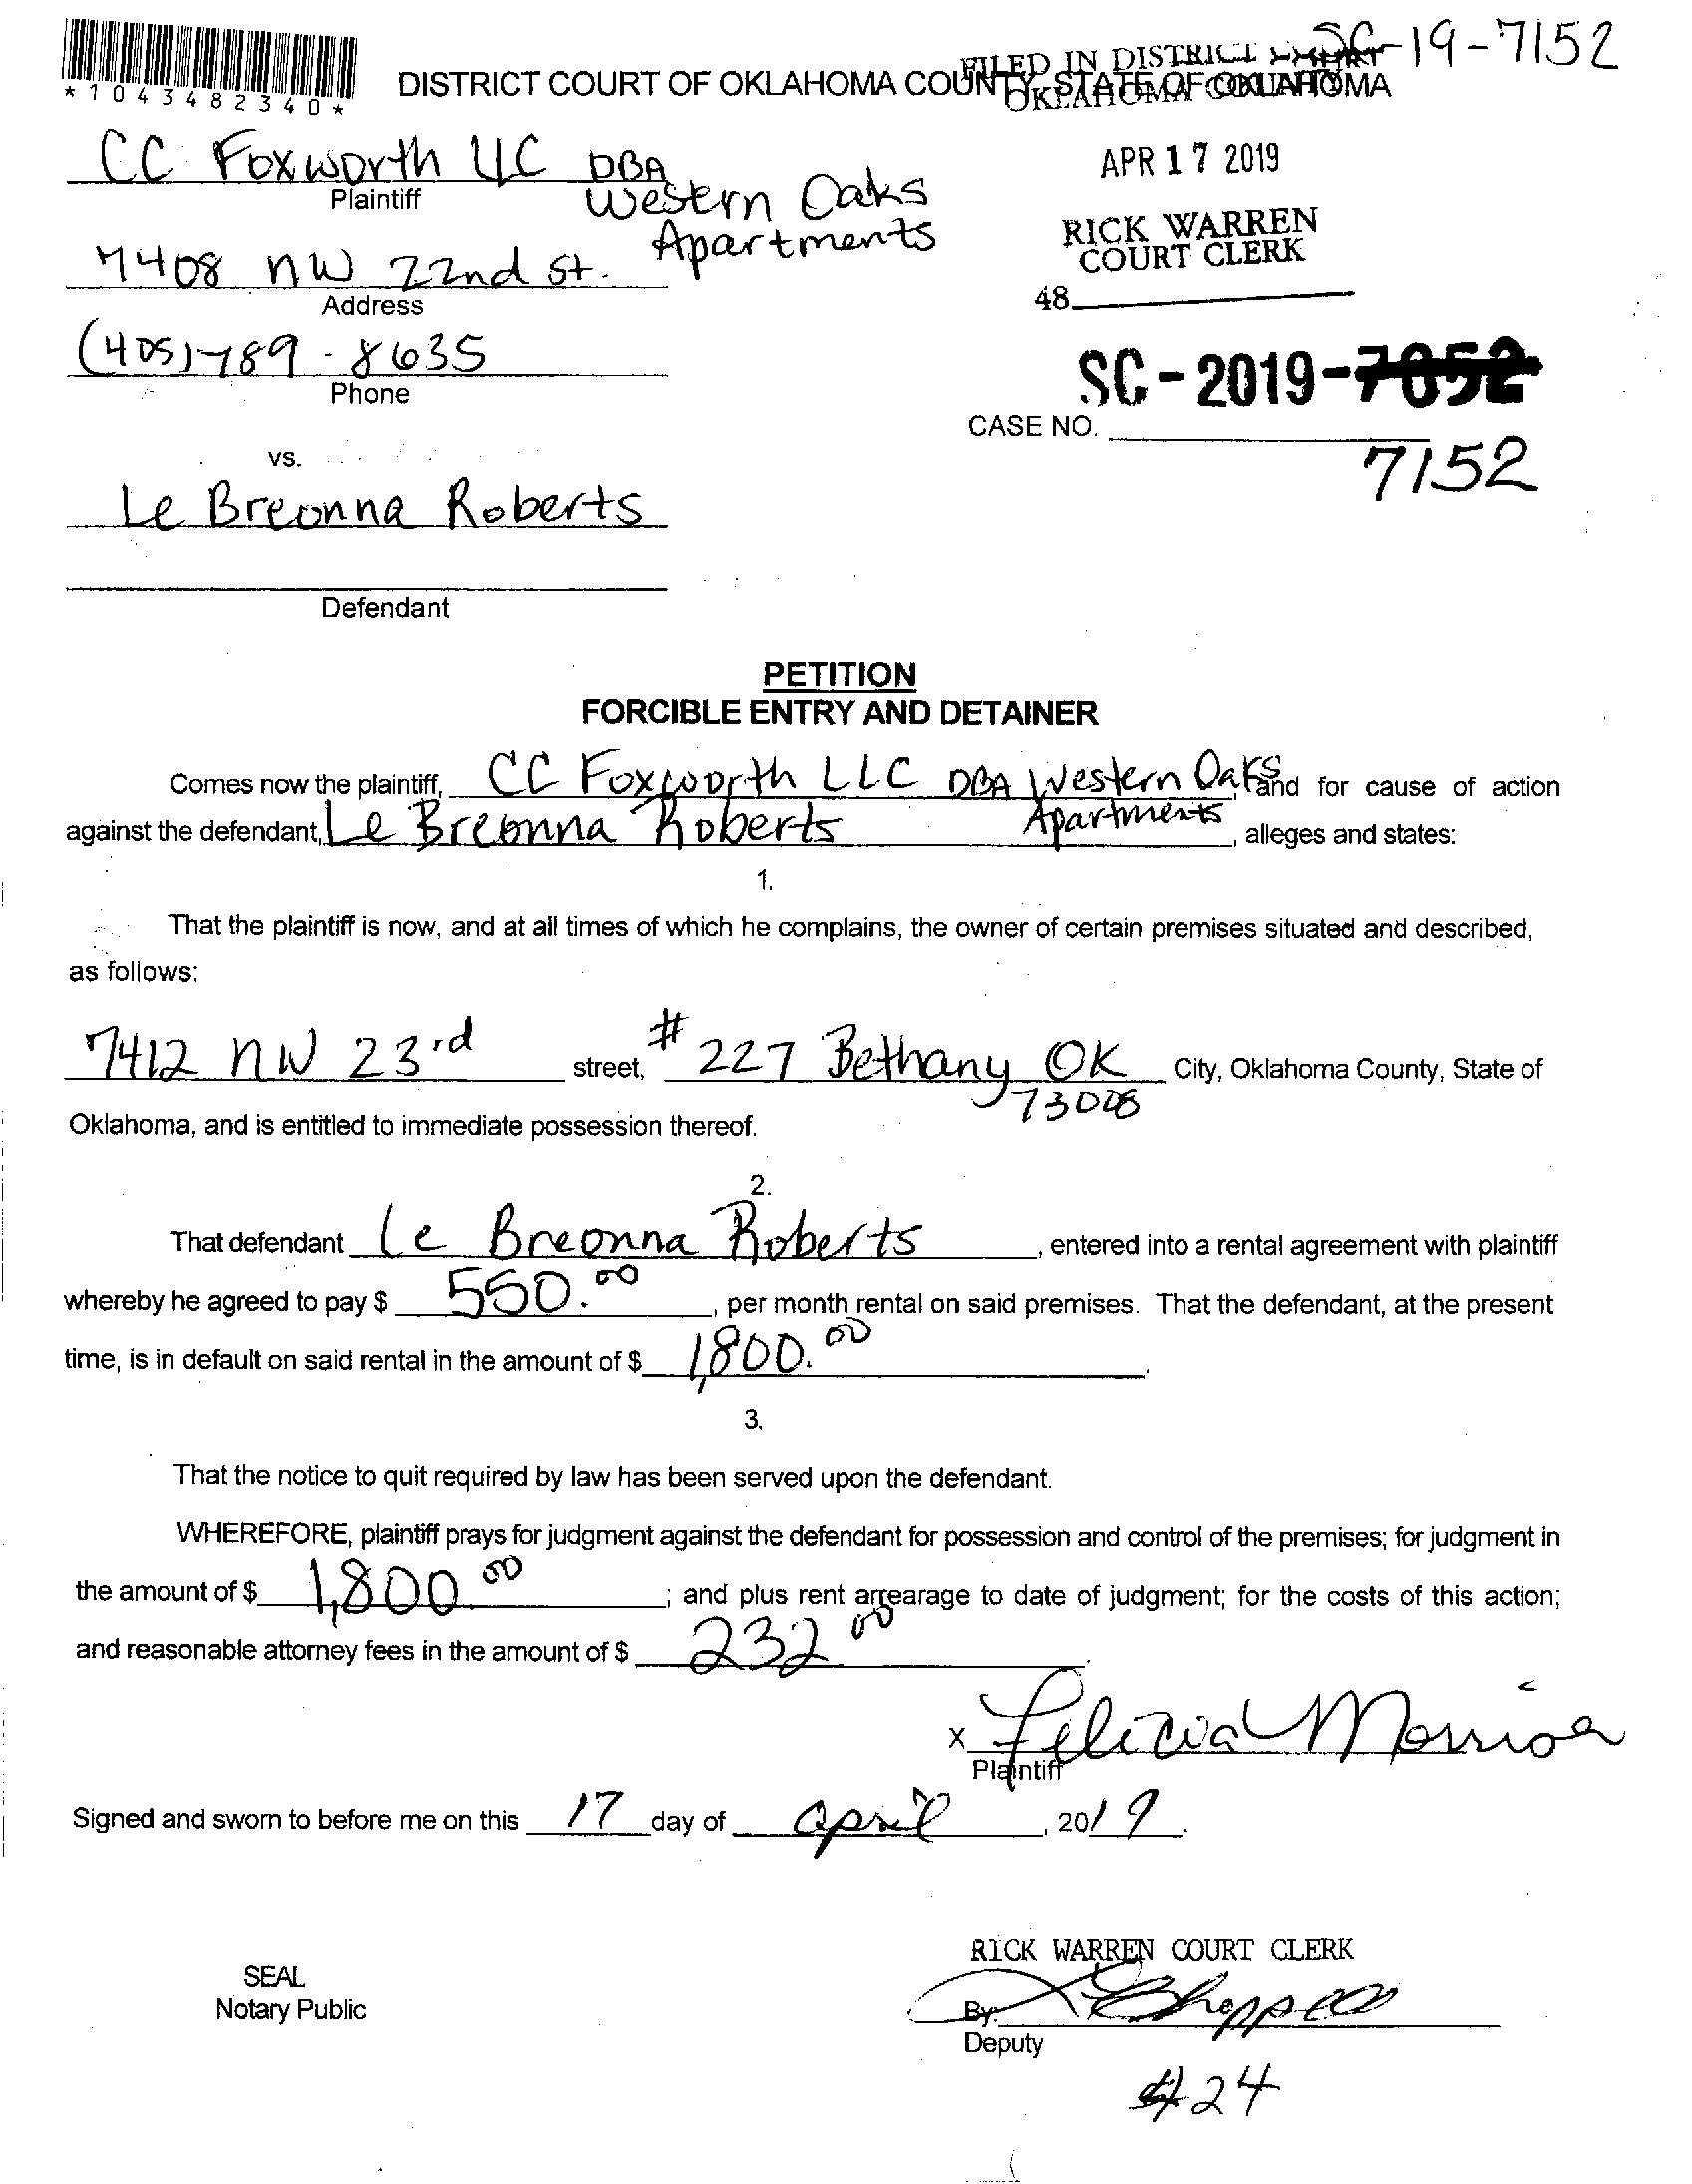 SC-19-7152
FILED IN DISTRICT COURT
OKLAHOMA COUNTY
*1043482340*
DISTRICT COURT OF OKLAHOMA COUNTY, STATE OF OKLAHOMA
CC Foxworth LLC DBA
Plaintiff
Western Oaks
Apartments
APR 17 2019
RICK WARREN
COURT CLERK
48
7408 NW 22nd St.
Address
(405)789-8635
Phone
SC-2019-7052
CASE NO.
7152
vs.
Le Breonna Roberts
Defendant
PETITION
FORCIBLE ENTRY AND DETAINER
Comes now the plaintiff, CC Foxworth LLC DBA Western Oaks and for cause of action
Apartments
against the defendant, Le Breonna Roberts, alleges and states:
1.
That the plaintiff is now, and at all times of which he complains, the owner of certain premises situated and described,
as follows:
7412 NW 23rd street, #227 Bethany OK City, Oklahoma County, State of
73008
Oklahoma, and is entitled to immediate possession thereof.
2.
That defendant Le Breonna Roberts, entered into a rental agreement with plaintiff
whereby he agreed to pay $ 550.00, per month rental on said premises. That the defendant, at the present
time, is in default on said rental in the amount of $ 1,800.00.
3.
That the notice to quit required by law has been served upon the defendant.
WHEREFORE, plaintiff prays for judgment against the defendant for possession and control of the premises; for judgment in
the amount of $ 1,800.00; and plus rent arrearage to date of judgment; for the costs of this action;
and reasonable attorney fees in the amount of $ 232 00.
x Felicia Morrison
Plaintiff
Signed and sworn to before me on this 17 day of april, 2019.
RICK WARREN COURT CLERK
SEAL
Notary Public
By:
Deputy
#24